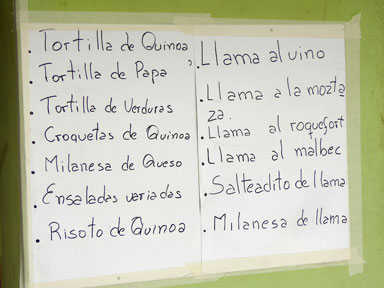 . Tortilla de Quinoa
. Tortilla de Papa
. Tortilla de Verduras
. Croquetas de Quinoa
. Milanesa de Queso
. Ensaladas variadas
. Risoto de Quinoa
. Llama al vino
. Llama a la mozta
za.
. Llama al roquefort
. Llama al malbec
. Salteadito de llama
. Milanesa de llama